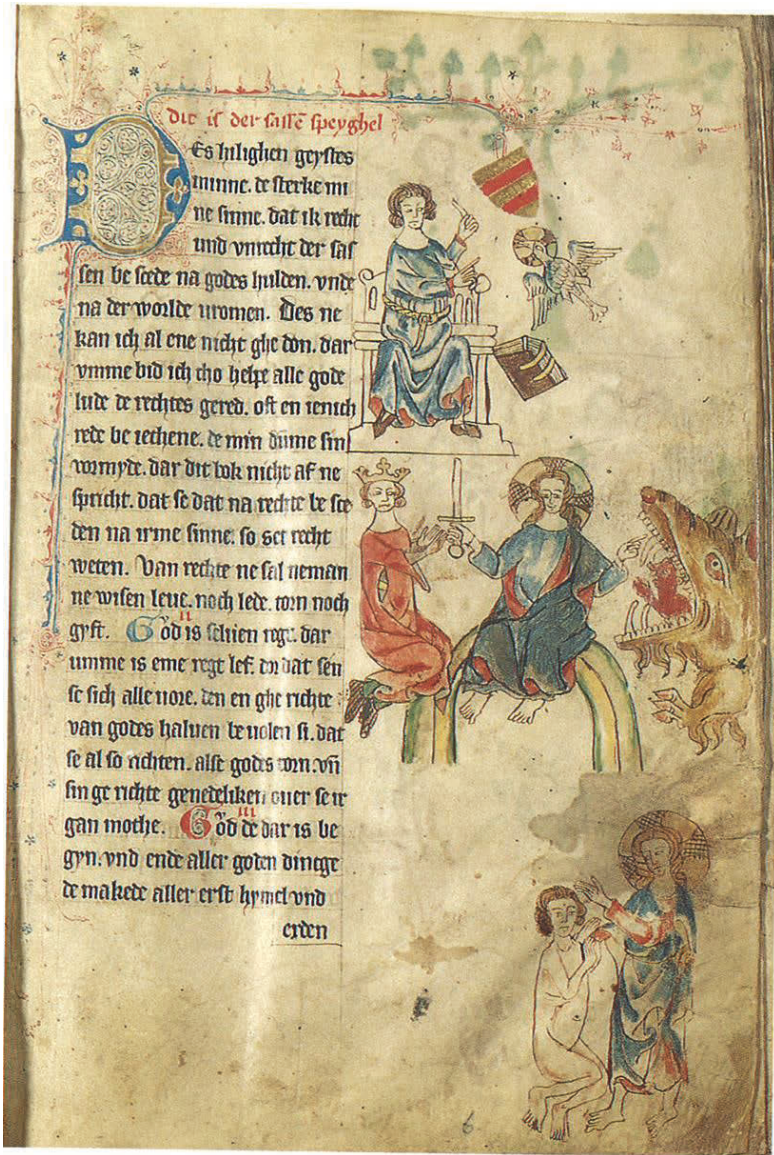 dit is der sassē speyghel
Des hilighen geystes
minne. de sterke mi
ne sinne. dat ik recht
und vnrecht der sas
sen be scede na godes hulden. vnde
na der worlde vromen. Des ne
kan ich al ene nicht ghe don. dar
vmme bid ich tho helpe alle gode
lude de rechtes gered. oft en ienich
rede be ieghene. de min dūme sin
vormyde. dar dit bok nicht af ne
spricht. dat se dat na rechte be sce
den na irme sinne. so set recht
weten. Van rechte ne sal neman
ne wisen leue. noch lede. torn noch
gyft. II God is seluen regt. dar
umme is eme regt lef. dat sen
se sich alle uore. den en ghe richte
van godes haluen be uolen si. dat
se al so richten. alse godes torn. vn̄
sin ge richte genedeliken ouer se ir
gan mothe. III God de dar is be
gyn. vnd ende aller goden dingge
de makede aller erst hymel vnd
erden
6